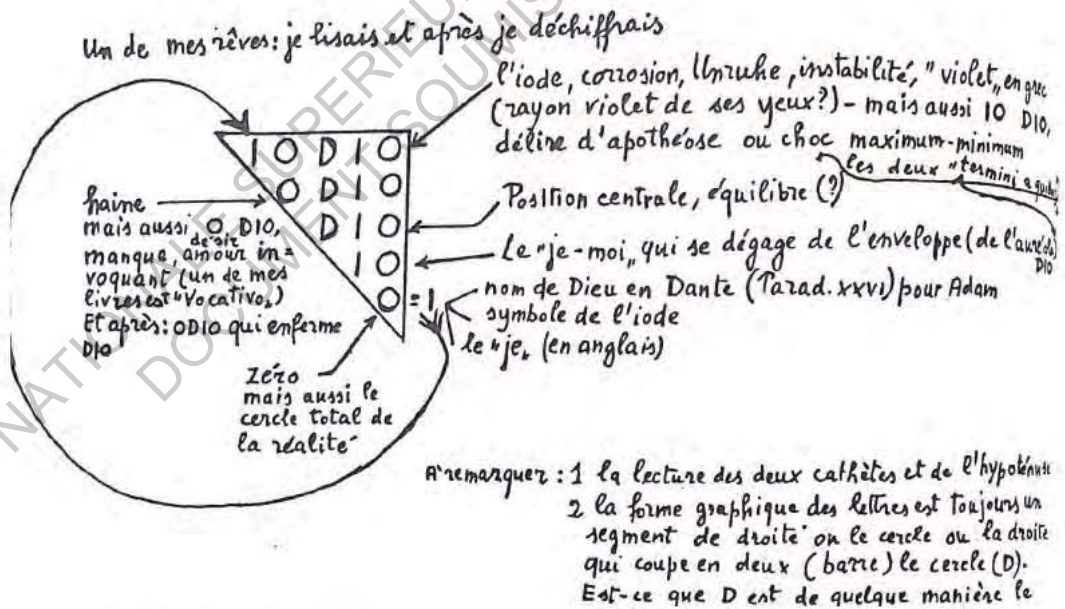 Un de mes rêves: je lisais et après je déchiffrais
l'iode, corrosion, Unruhe, instabilité, "violet„ en grec
(rayon violet de ses yeux?) - mais aussi IO DIO,
délire d'apothéose ou choc maximum-minimum
les deux "termini a
I O D I O
O D I O
D I O
I O
O = I
haine
mais aussi O DIO,
désir
manque, amour in=
voquant (un de mes
livres est "Vocativo„)
Et après: ODIO qui enferme
DIO
Position centrale, équilibre (?)
Le "je-moi„ qui se dégage de l'enveloppe (de
DIO
nom de Dieu en Dante (Parad. XXVI) pour Adam
symbole de l'iode
le "je„ (en anglais)
zéro
mais aussi le
cercle total de
la réalité
A remarquer: 1 la lecture des deux cathètes et de l'hypoténuse
2 la forme graphique des lettres est toujours un
segment de droite ou le cercle ou la droite
qui coupe en deux (barre) le cercle (D).
Est-ce que D est de quelque manière le